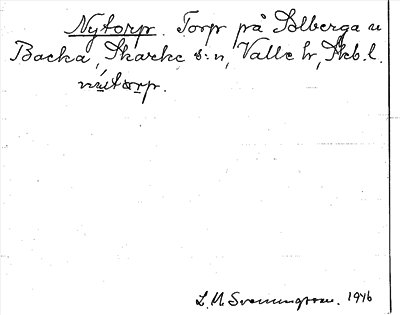 Nytorp. Torp på Solberga u
Backa, Skarke s:n, Valle hr, Skb.l.
nútòrp.
L. M. Svenungsson. 1946